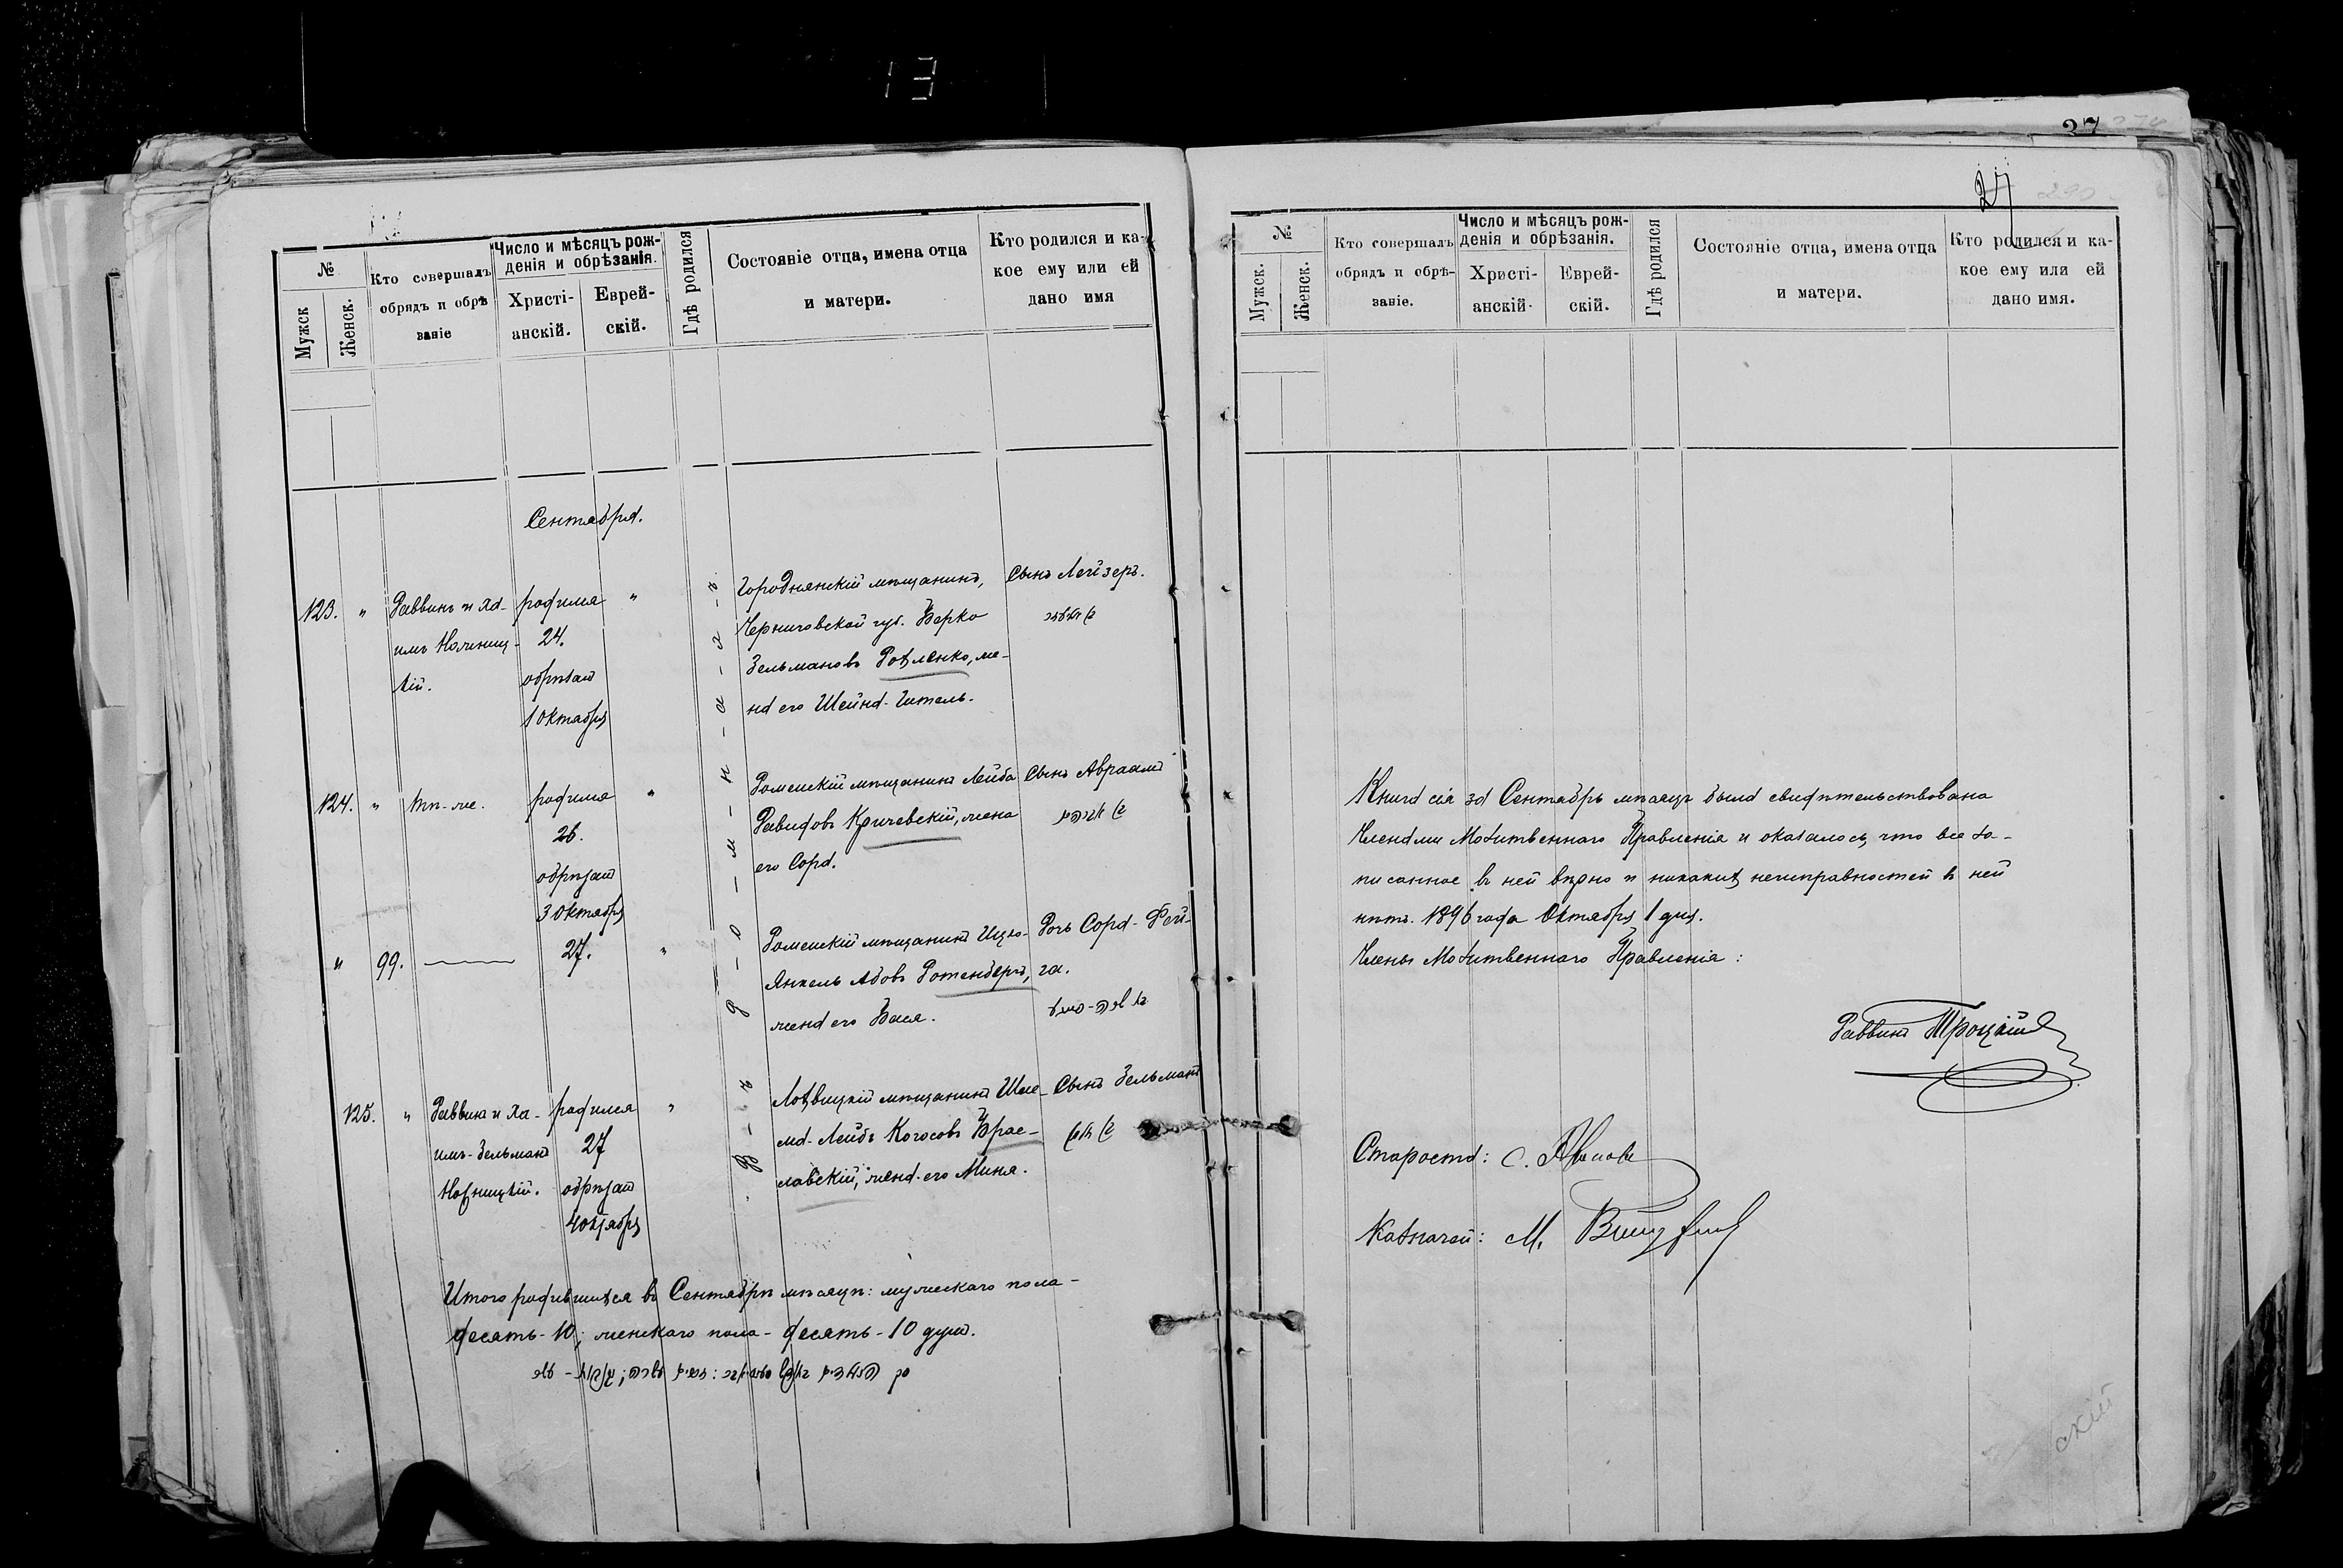 13
37
27
№
Мужск
Женск.
Кто совершалъ
обрядъ и обрѣ
заніе
Число и мѣсяцъ рож-
денія и обрѣзанія.
Христі-
анскій.
Еврей-
скій.
Гдѣ родился
Состояніе отца, имена отца
и матери.
Кто родился и ка-
кое ему или ей
дано имя
Сентября.
123.
"
Раввинъ и Ха-
имъ
кій.
родился
24.
обрѣзанъ
1 Октября
"
Городнянскій мѣщанинъ,
Черниговской губ. Берко
Зельмановъ Рохленко, же-
на его Шейна-Гитель.
Сынъ Лейзеръ.
124.
"
Тѣ-же.
родился
26.
обрѣзанъ
3 Октября
"
Роменскій мѣщанинъ Лейба
Давидовъ Кричевскій, жена
его Сора.
Сынъ Авраамъ
"
99.
27.
"
Роменскій мѣщанинъ Ицко-
Янкель Абовъ Ротенбергъ,
жена его Бася.
Дочь Сора-Фей-
га.
125.
"
Раввинъ и Ха-
имъ-Зельманъ
родился
27
обрѣзанъ
4 Октября
"
Лохвицкій мѣщанинъ Шле-
ма-Лейбъ Когосовъ Брас-
лавскій, жена его Миня.
Сынъ Зельманъ
Итого родившихся въ Сентябрѣ мѣсяцѣ: мужескаго пола-
десять-10; женскаго пола-десять-10 душъ.
№
Мужск.
Женск.
Кто совершалъ
обрядъ и обрѣ-
заніе.
Число и мѣсяцъ рож-
денія и обрѣзанія.
Христі-
анскій.
Еврей-
скій.
Гдѣ родился
Состояніе отца, имена отца
и матери.
Кто родился и ка-
кое ему или ей
дано имя.
Книга сія за Сентябрь мѣсяцъ была свидѣтельствована
Членами Молитвеннаго Правленія и оказалось, что все за-
писанное въ ней вѣрно и никакихъ неисправностей въ ней
нѣтъ. 1896 года Октября 1 дня.
Члены Молитвеннаго Правленія:
Раввинъ Троцкій
Староста: С.
Казначей: М.
скій